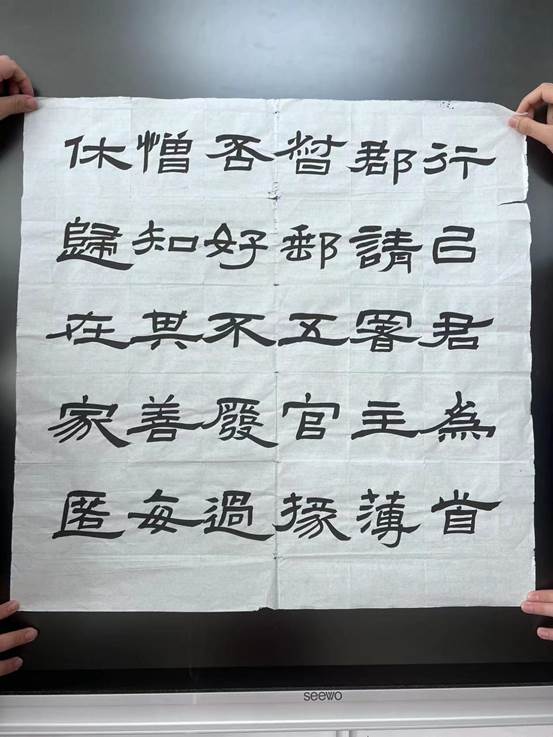 行己君為首
郡請署主薄
督郵五官掾
否好不廢過
憎知其善每
休歸在家匿
seewo